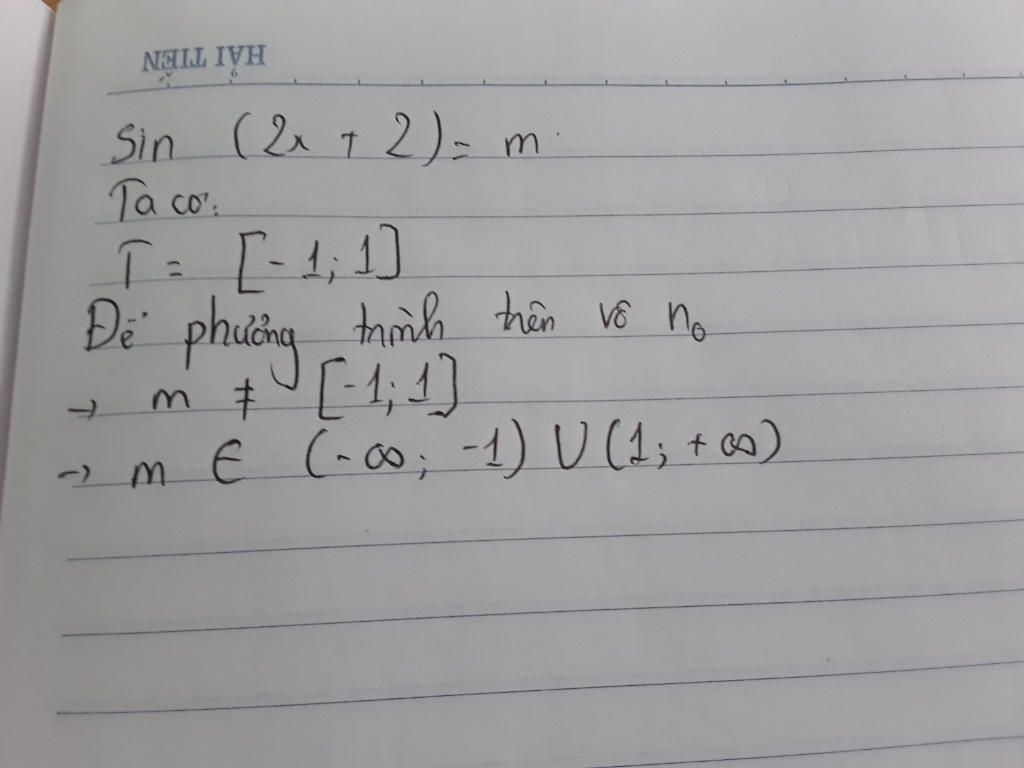 HẢI TIẾN
Sin (2x + 2) = m
Ta có:
T = [-1; 1]
Để phương trình trên vô n₀
→ m ≠ [-1; 1]
→ m ∈ (-∞; -1) ∪ (1; +∞)